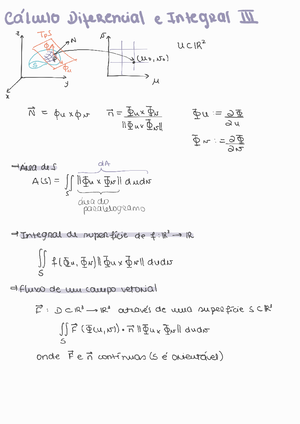 Cálculo Diferencial e Integral III
z TpS N v (u₀,v₀) U⊂ℝ²
S Φv Φu
x y u
N⃗ = Φu × Φv n⃗ = Φu × Φv / ||Φu × Φv|| Φu := ∂Φ/∂u
Φv := ∂Φ/∂v
→ Área de S dA
A(S) = ∬ ||Φu × Φv|| du dv
S área do
paralelogramo
→ Integral de superfície de f: ℝ³ → ℝ
∬ f(Φu, Φv) ||Φu × Φv|| du dv
S
→ Fluxo de um campo vetorial
F⃗ : D⊂ℝ³ → ℝ³ através de uma superfície S⊂ℝ³
∬ F⃗ (Φ(u,v)) · n⃗ ||Φu × Φv|| du dv
S
onde F⃗ e n⃗ contínuas (S é orientável)